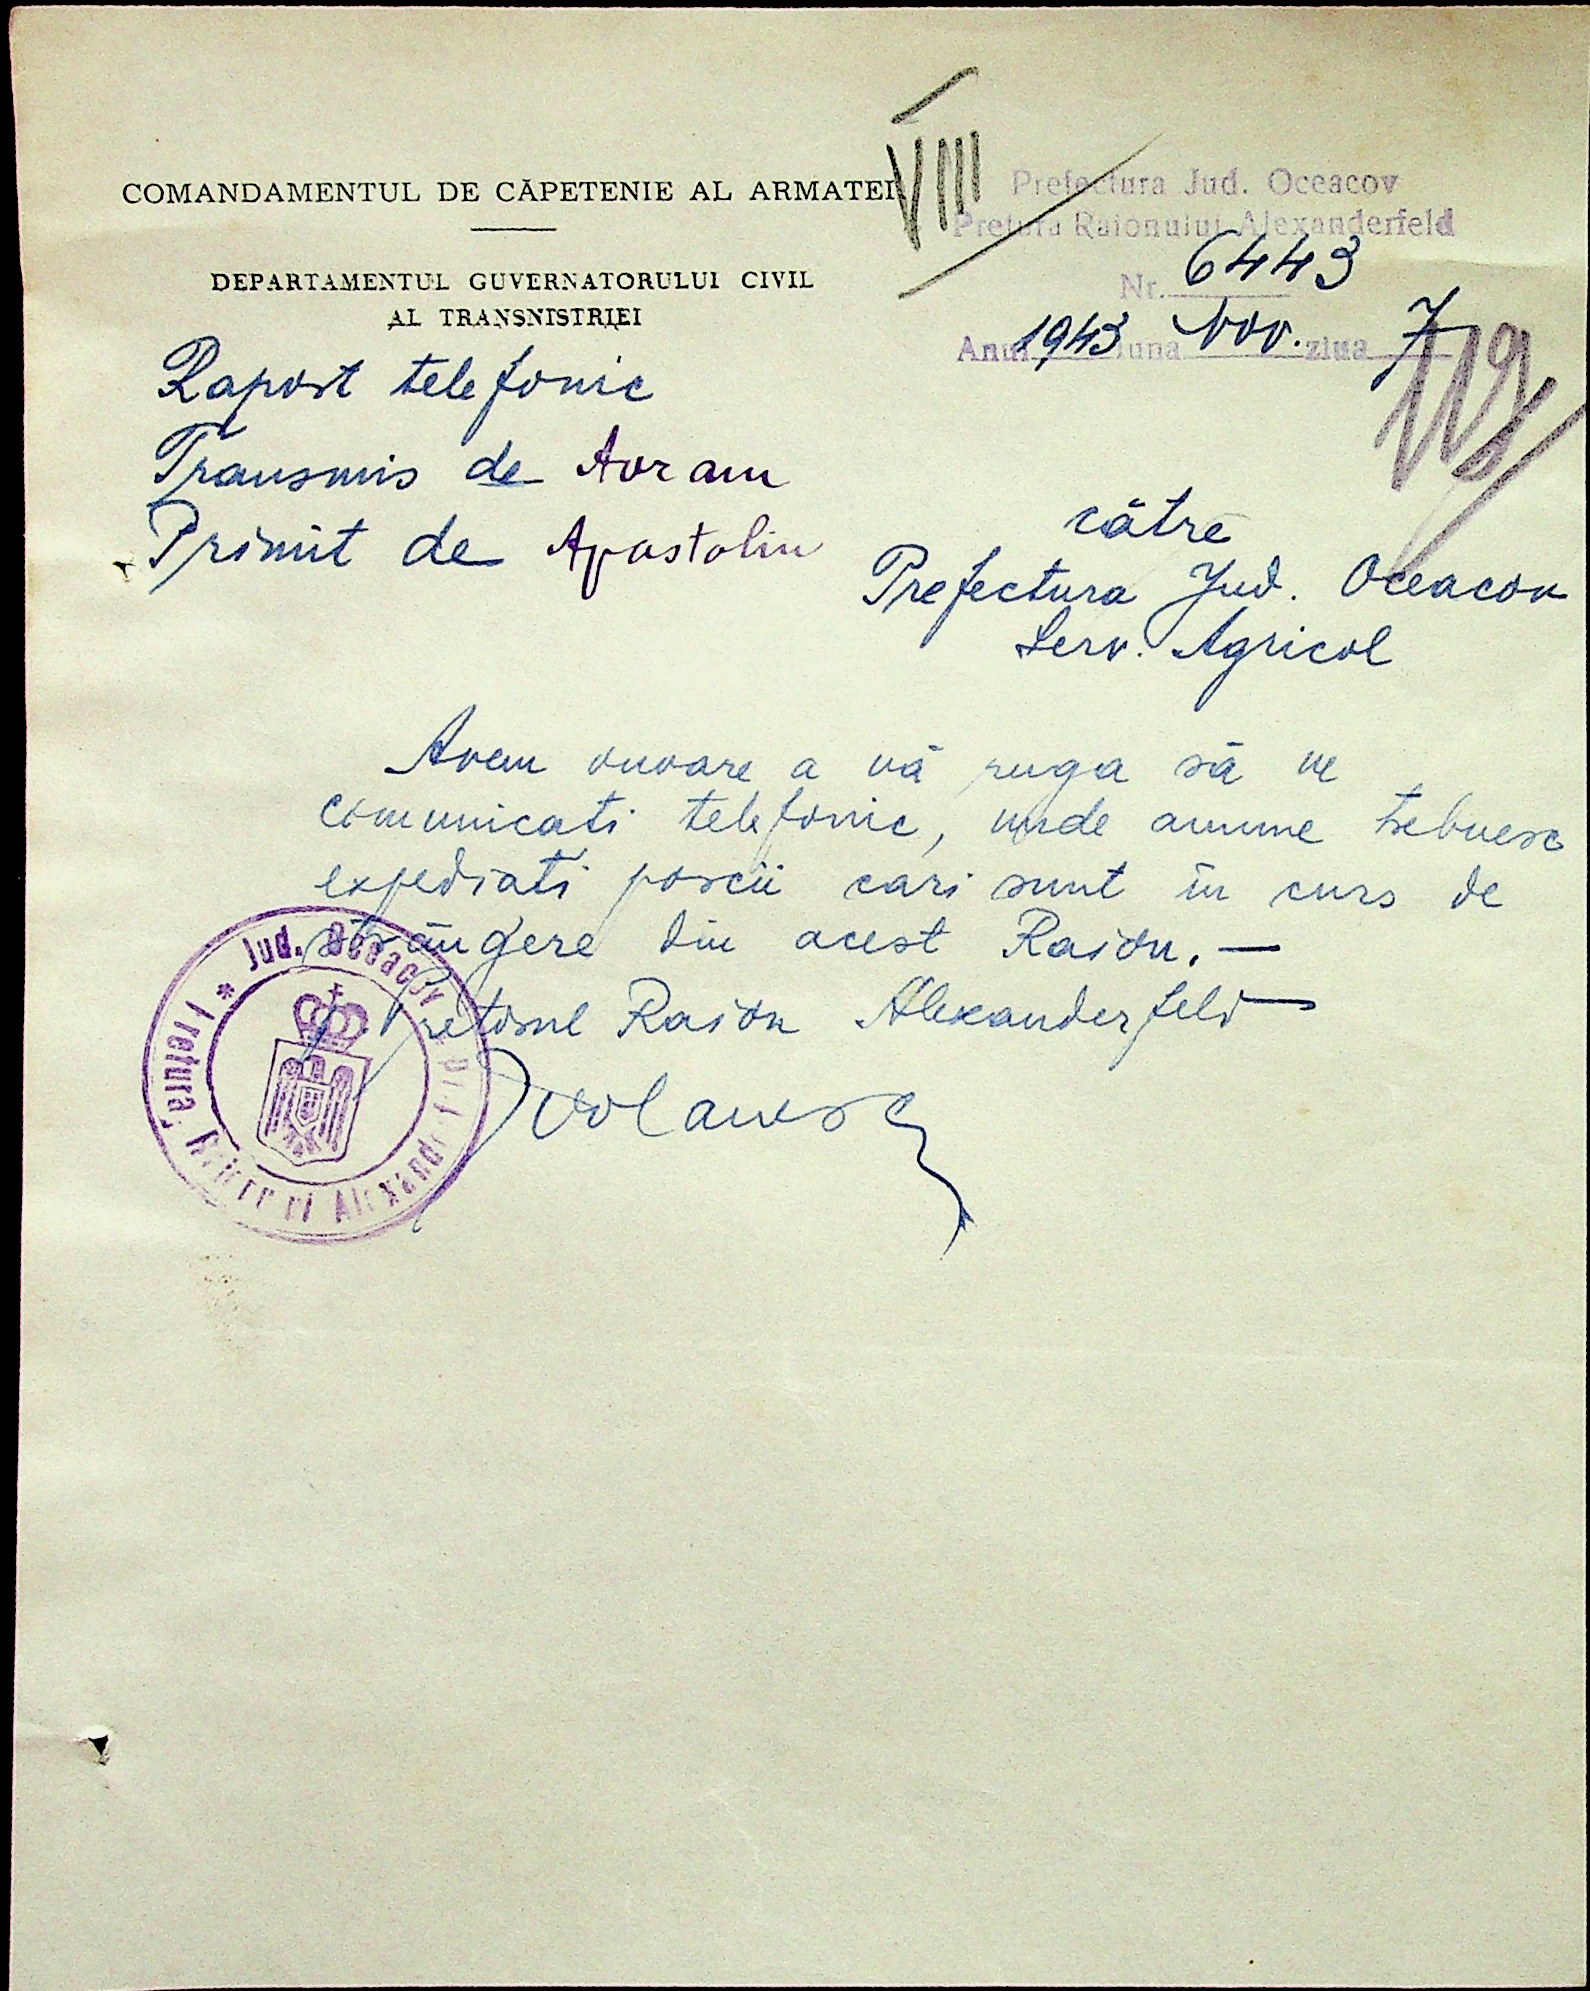 COMANDAMENTUL DE CĂPETENIE AL ARMATEI
DEPARTAMENTUL GUVERNATORULUI CIVIL
AL TRANSNISTRIEI
VIII
Prefectura Jud. Oceacov
Pretura Raionului Alexanderfeld
Nr. 6443
Anul 1943 luna Nov. ziua 7
Raport telefonic
Transmis de Avram
Primit de Apostoliu
către
Prefectura Jud. Oceacov
Serv. Agricol
Avem onoare a vă ruga să ne
comunicati telefonic, unde anume trebuesc
expediati porcii cari sunt în curs de
strângere din acest Raion. —
Pretorul Raion Alexanderfeld
Jud. Oceacov * Pretura Raionului Alexanderfeld